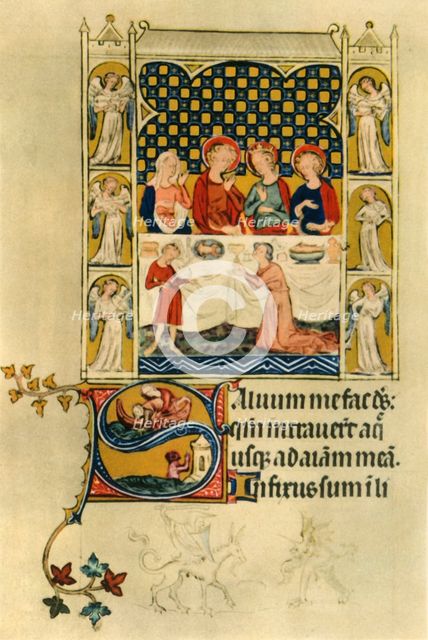 Heritage Heritage
Heritage Heritage Heritage
Saluum me fac d̄s:
qm̄ intrauer̄t aq̄
usq; ad aīam meā.
Infixus sum ī li